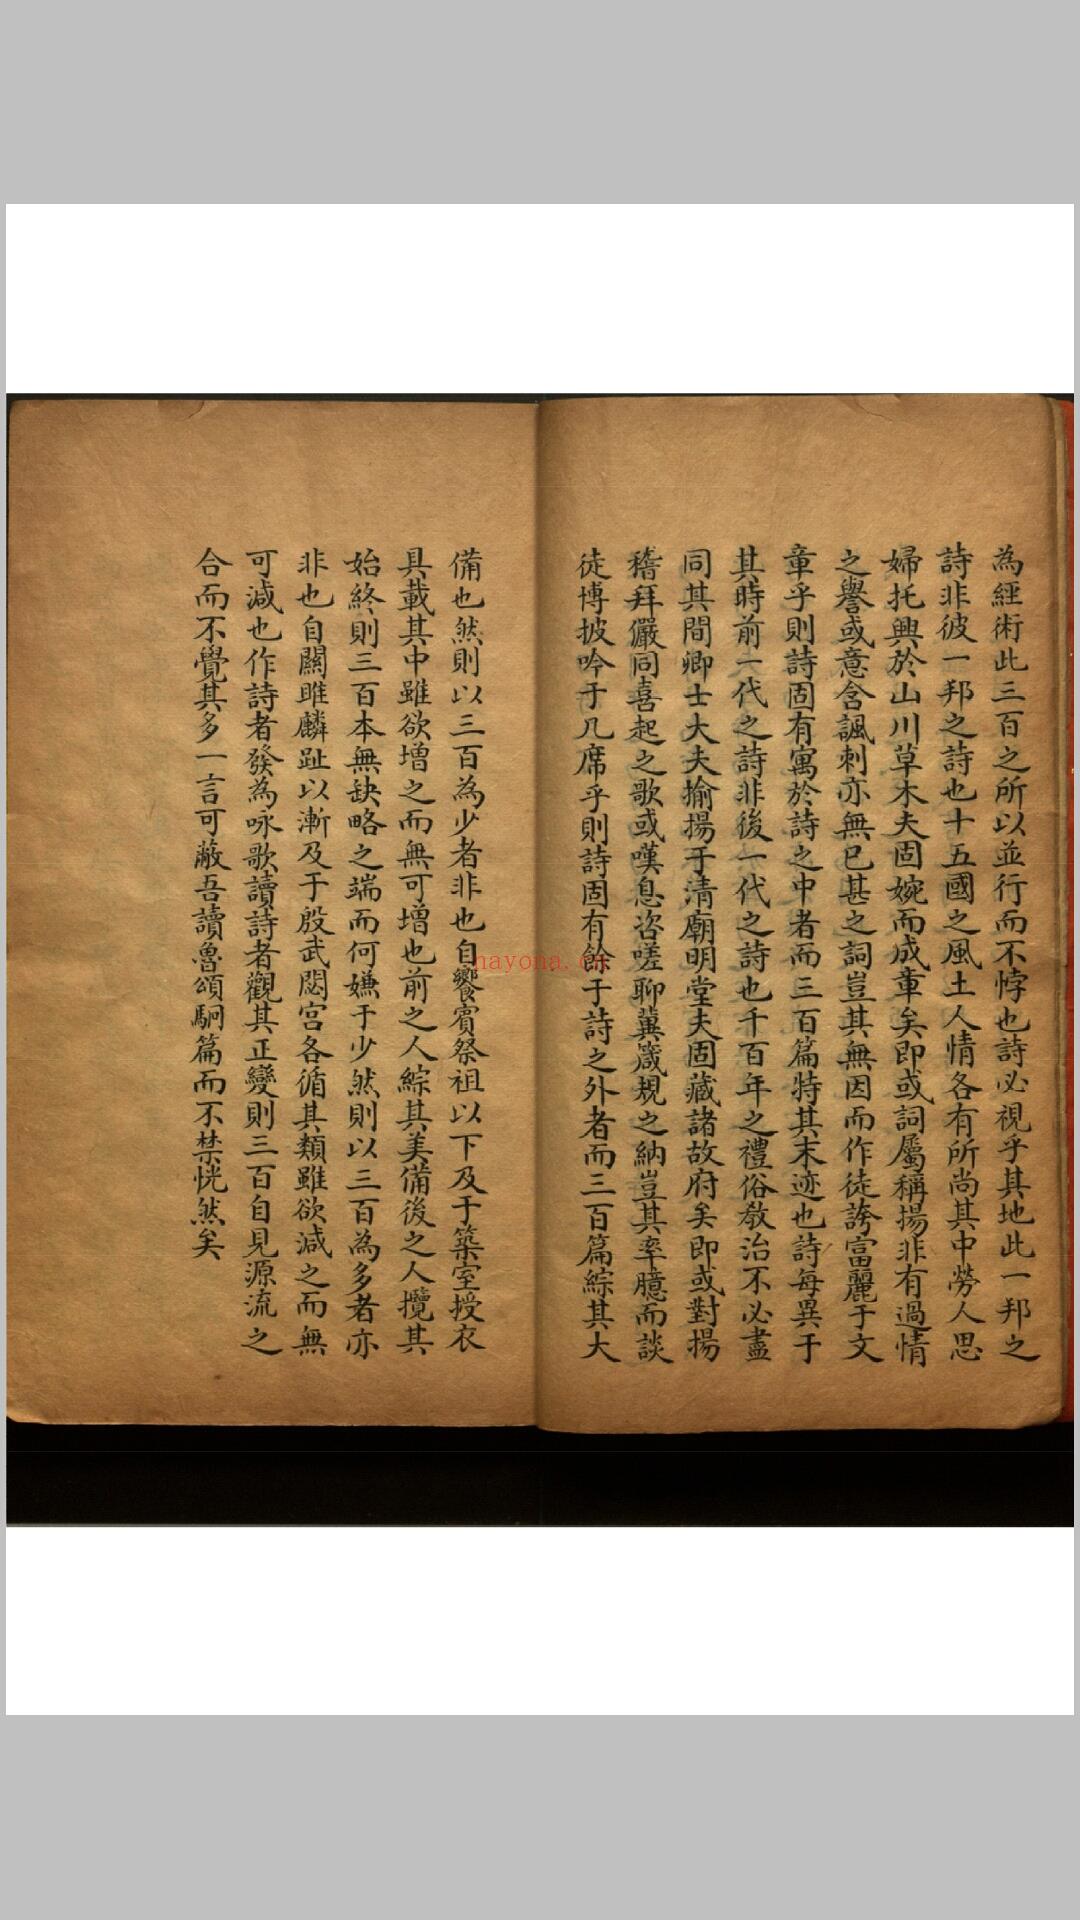 為經術此三百之所以並行而不悖也詩必視乎其地此一邦之
詩非彼一邦之詩也十五國之風土人情各有所尚其中勞人思
婦托興於山川草木夫固婉而成章矣即或詞屬稱揚非有過情
之譽或意含諷刺亦無已甚之詞豈其無因而作徒誇富麗于文
章乎則詩固有寓於詩之中者而三百篇特其末迹也詩每異于
其時前一代之詩非後一代之詩也千百年之禮俗敎治不必盡
同其間卿士大夫揄揚于清廟明堂夫固藏諸故府矣即或對揚
稽拜儼同喜起之歌或嘆息咨嗟聊冀箴規之納豈其率臆而談
徒博披吟于几席乎則詩固有餘于詩之外者而三百篇綜其大
備也然則以三百為少者非也自饗賓祭祖以下及于築室授衣
具載其中雖欲增之而無可增也前之人綜其美備後之人攬其
始終則三百本無缺略之端而何嫌于少然則以三百為多者亦
非也自關雎麟趾以漸及于殷武閟宮各循其類雖欲減之而無
可減也作詩者發為咏歌讀詩者觀其正變則三百自見源流之
合而不覺其多一言可蔽吾讀魯頌駉篇而不禁恍然矣
nayona.cn